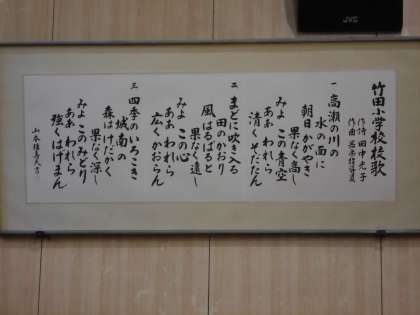 竹田小学校校歌
作詩 田中光子
一 高瀬の川の
水の面に
朝日かがやき
果なく高し
みよ この青空
ああ われら
清くそだたん
二 まどに吹き入る
田のかおり
風はるばると
果なく遠し
みよ この心
ああ われら
広くかおらん
三 四季のいろこき
城南の
森はけだかく
果なく深し
みよ このみどり
ああ われら
強くはげまん
JVC